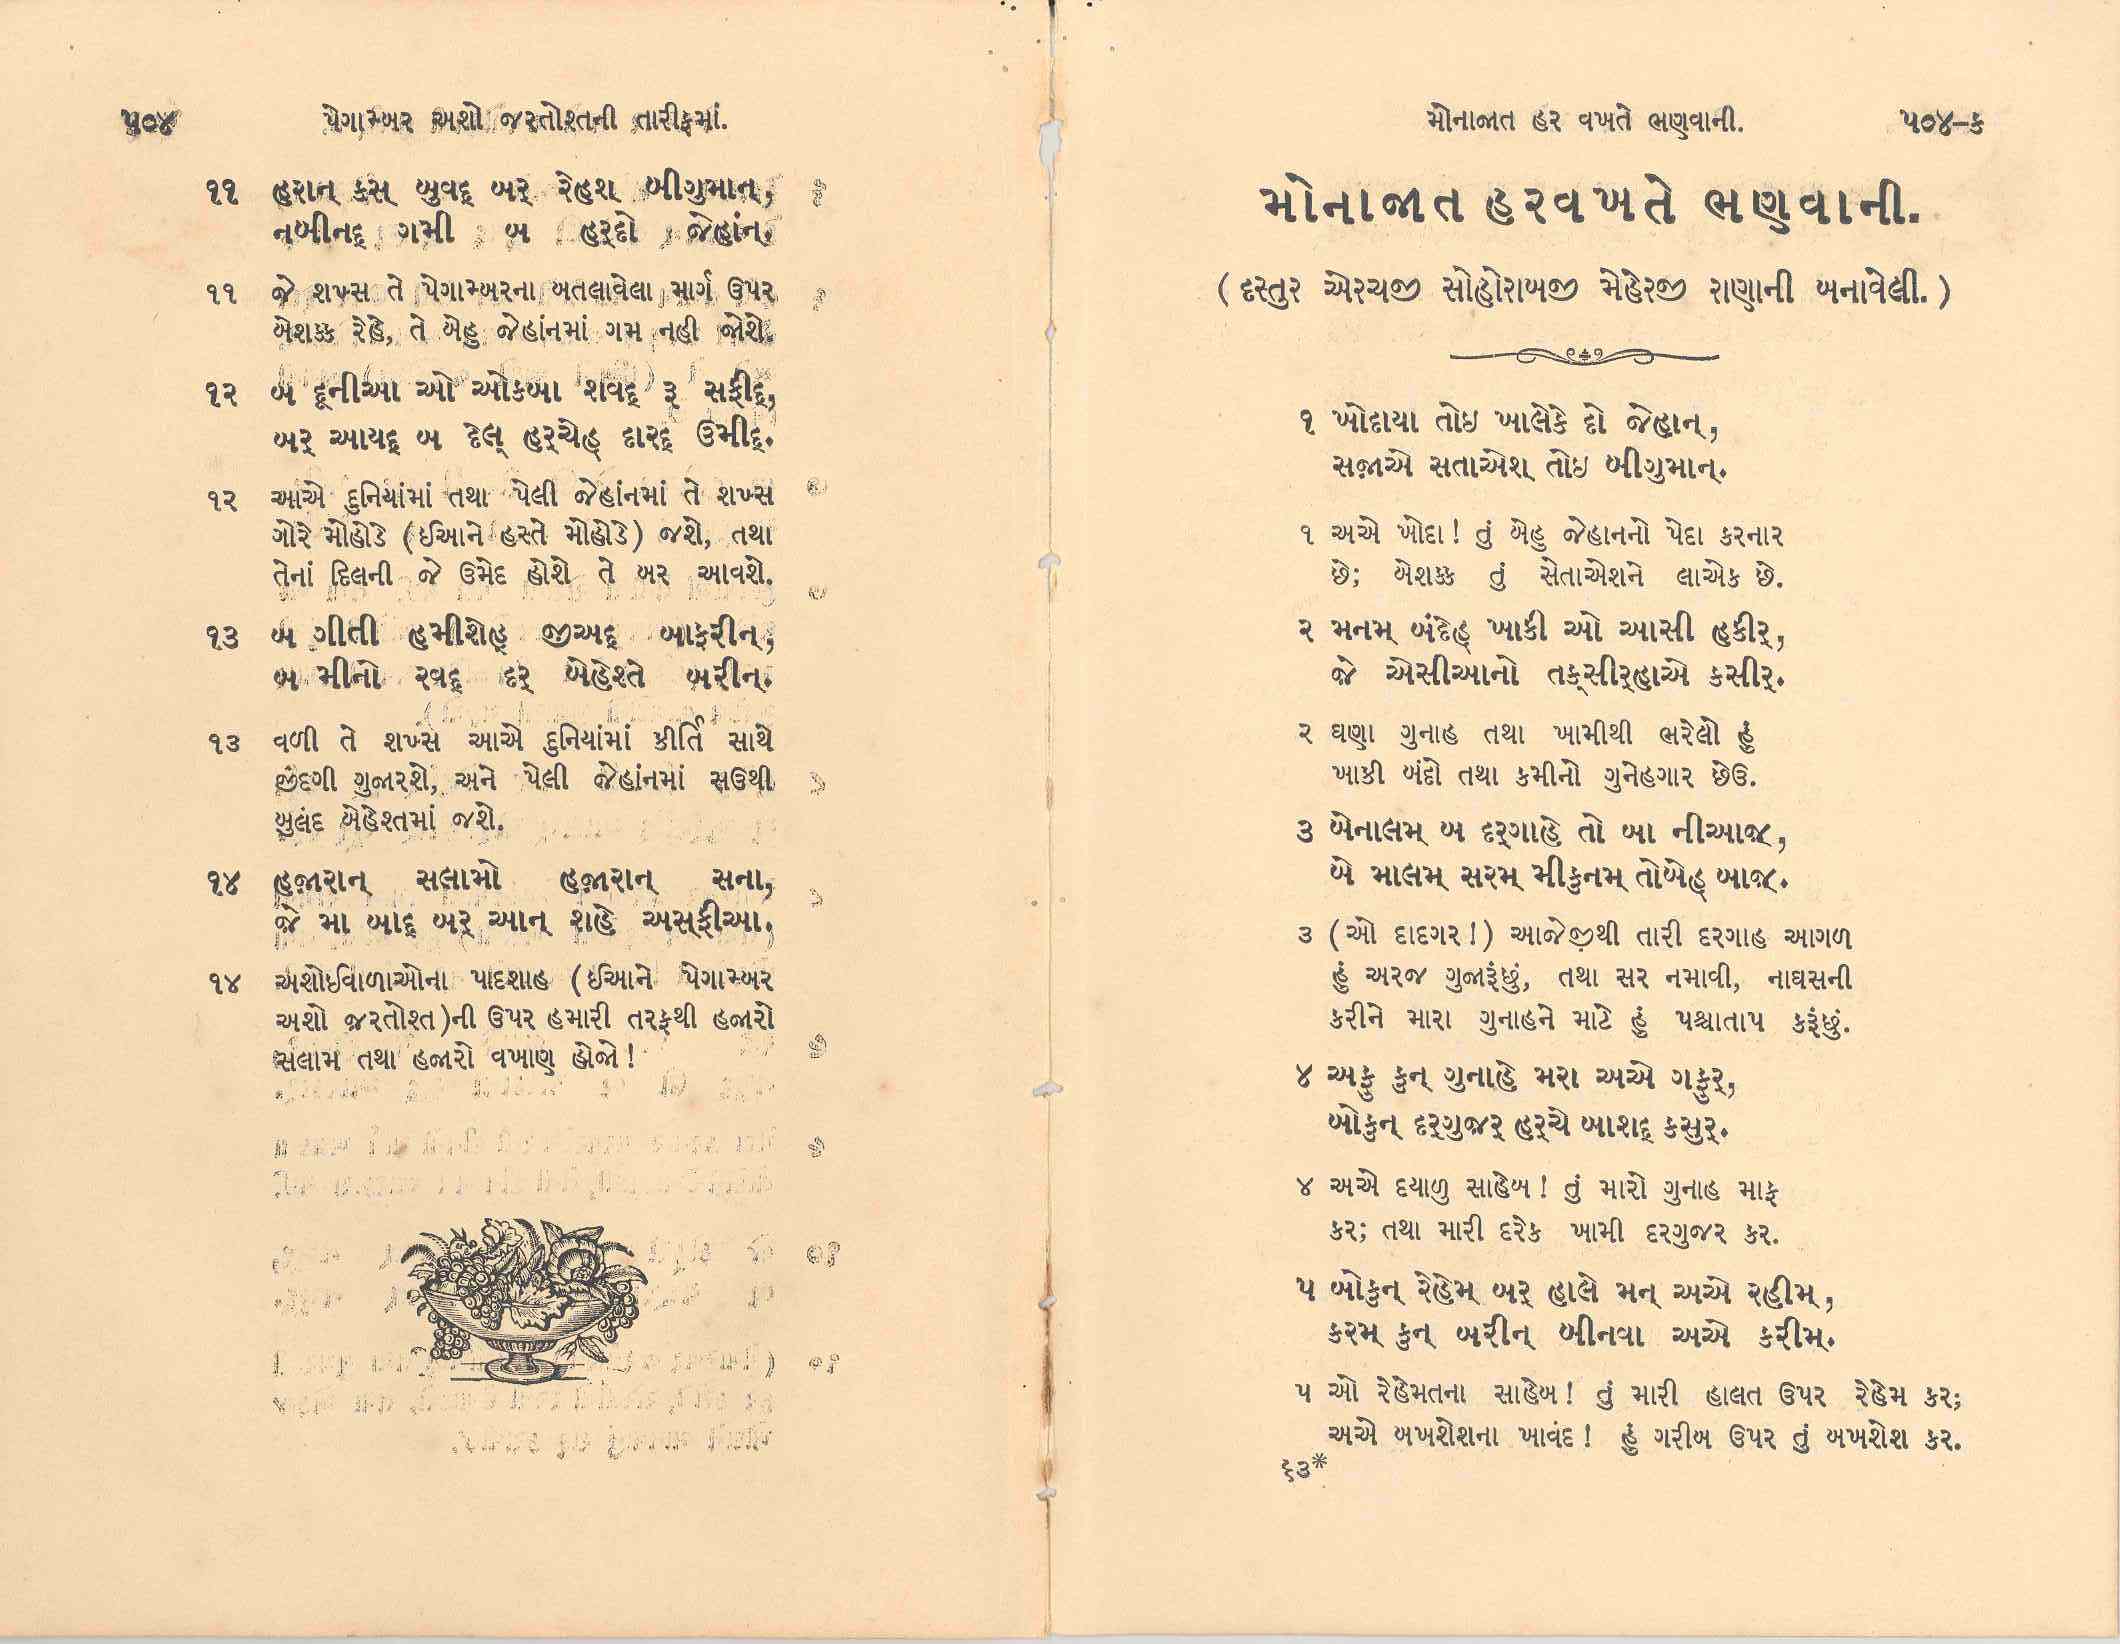 ૫૦૪ પેગામ્બર અશો જરતોશ્તની તારીફમાં.
૧૧ હરાન્ કસ્ બુવદ્ બર્ રેહશ બીગુમાન્,
નબીનદ્ ગમી બ હર્દો જેહાંન્.
૧૧ જે શખ્સ તે પેગામ્બરના બતલાવેલા માર્ગ ઉપર
બેશક્ક રેહે, તે બેહુ જેહાંનમાં ગમ નહી જોશે.
૧૨ બ દૂનીઆ ઓ ઓકબા શવદ્ રૂ સફીદ્,
બર્ આયદ્ બ દેલ્ હર્ચેહ્ દારદ્ ઉમીદ્.
૧૨ આએ દુનિયાંમાં તથા પેલી જેહાંનમાં તે શખ્સ
ગોરે મોહોડે (ઈઆને હસ્તે મોહોડે) જશે, તથા
તેનાં દિલની જે ઉમેદ હોશે તે બર આવશે.
૧૩ બ ગીતી હમીશેહ્ જીઅદ્ બાફરીન્,
બ મીનો રવદ્ દર્ બેહેશ્તે બરીન્.
૧૩ વળી તે શખ્સ આએ દુનિયાંમાં કીર્તિ સાથે
જીંદગી ગુજારશે, અને પેલી જેહાંનમાં સઉથી
બુલંદ બેહેશ્તમાં જશે.
૧૪ હજારાન્ સલામો હજારાન્ સના,
જે મા બાદ્ બર્ આન્ શહે અસ્ફીઆ.
૧૪ અશોઈવાળાઓના પાદશાહ (ઈઆને પેગામ્બર
અશો જરતોશ્ત)ની ઉપર હમારી તરફથી હજારો
સલામ તથા હજારો વખાણ હોજો!
મોનાજાત હર વખતે ભણવાની. ૫૦૪-ક
મોનાજાત હરવખતે ભણવાની.
(દસ્તુર એરચજી સોહોરાબજી મેહેરજી રાણાની બનાવેલી.)
૧ ખોદાયા તોઇ ખાલેકે દો જેહાન્,
સજાએ સતાએશ્ તોઇ બીગુમાન્.
૧ અએ ખોદા! તું બેહુ જેહાનનો પેદા કરનાર
છે; બેશક્ક તું સેતાએશને લાએક છે.
૨ મનમ્ બંદેહ્ ખાકી ઓ આસી હકીર્,
જે એસીઆનો તક્સીર્હાએ કસીર્.
૨ ઘણા ગુનાહ તથા ખામીથી ભરેલો હું
ખાકી બંદો તથા કમીનો ગુનેહગાર છેઉ.
૩ બેનાલમ્ બ દર્ગાહે તો બા નીઆજ્,
બે માલમ્ સરમ્ મીકુનમ્ તોબેહ્ બાજ્.
૩ (ઓ દાદગર!) આજેજીથી તારી દરગાહ આગળ
હું અરજ ગુજારૂંછું, તથા સર નમાવી, નાઘસની
કરીને મારા ગુનાહને માટે હું પશ્ચાતાપ કરૂંછું.
૪ અફુ કુન્ ગુનાહે મરા અએ ગફુર્,
બોકુન્ દર્ગુજર્ હર્ચે બાશદ્ કસુર્.
૪ અએ દયાળુ સાહેબ! તું મારો ગુનાહ માફ
કર; તથા મારી દરેક ખામી દરગુજર કર.
૫ બોકુન્ રેહેમ્ બર્ હાલે મન્ અએ રહીમ્,
કરમ્ કુન્ બરીન્ બીનવા અએ કરીમ્.
૫ ઓ રેહેમતના સાહેબ! તું મારી હાલત ઉપર રેહેમ કર;
અએ બખશેશના ખાવંદ! હું ગરીબ ઉપર તું બખશેશ કર.
૬૩*